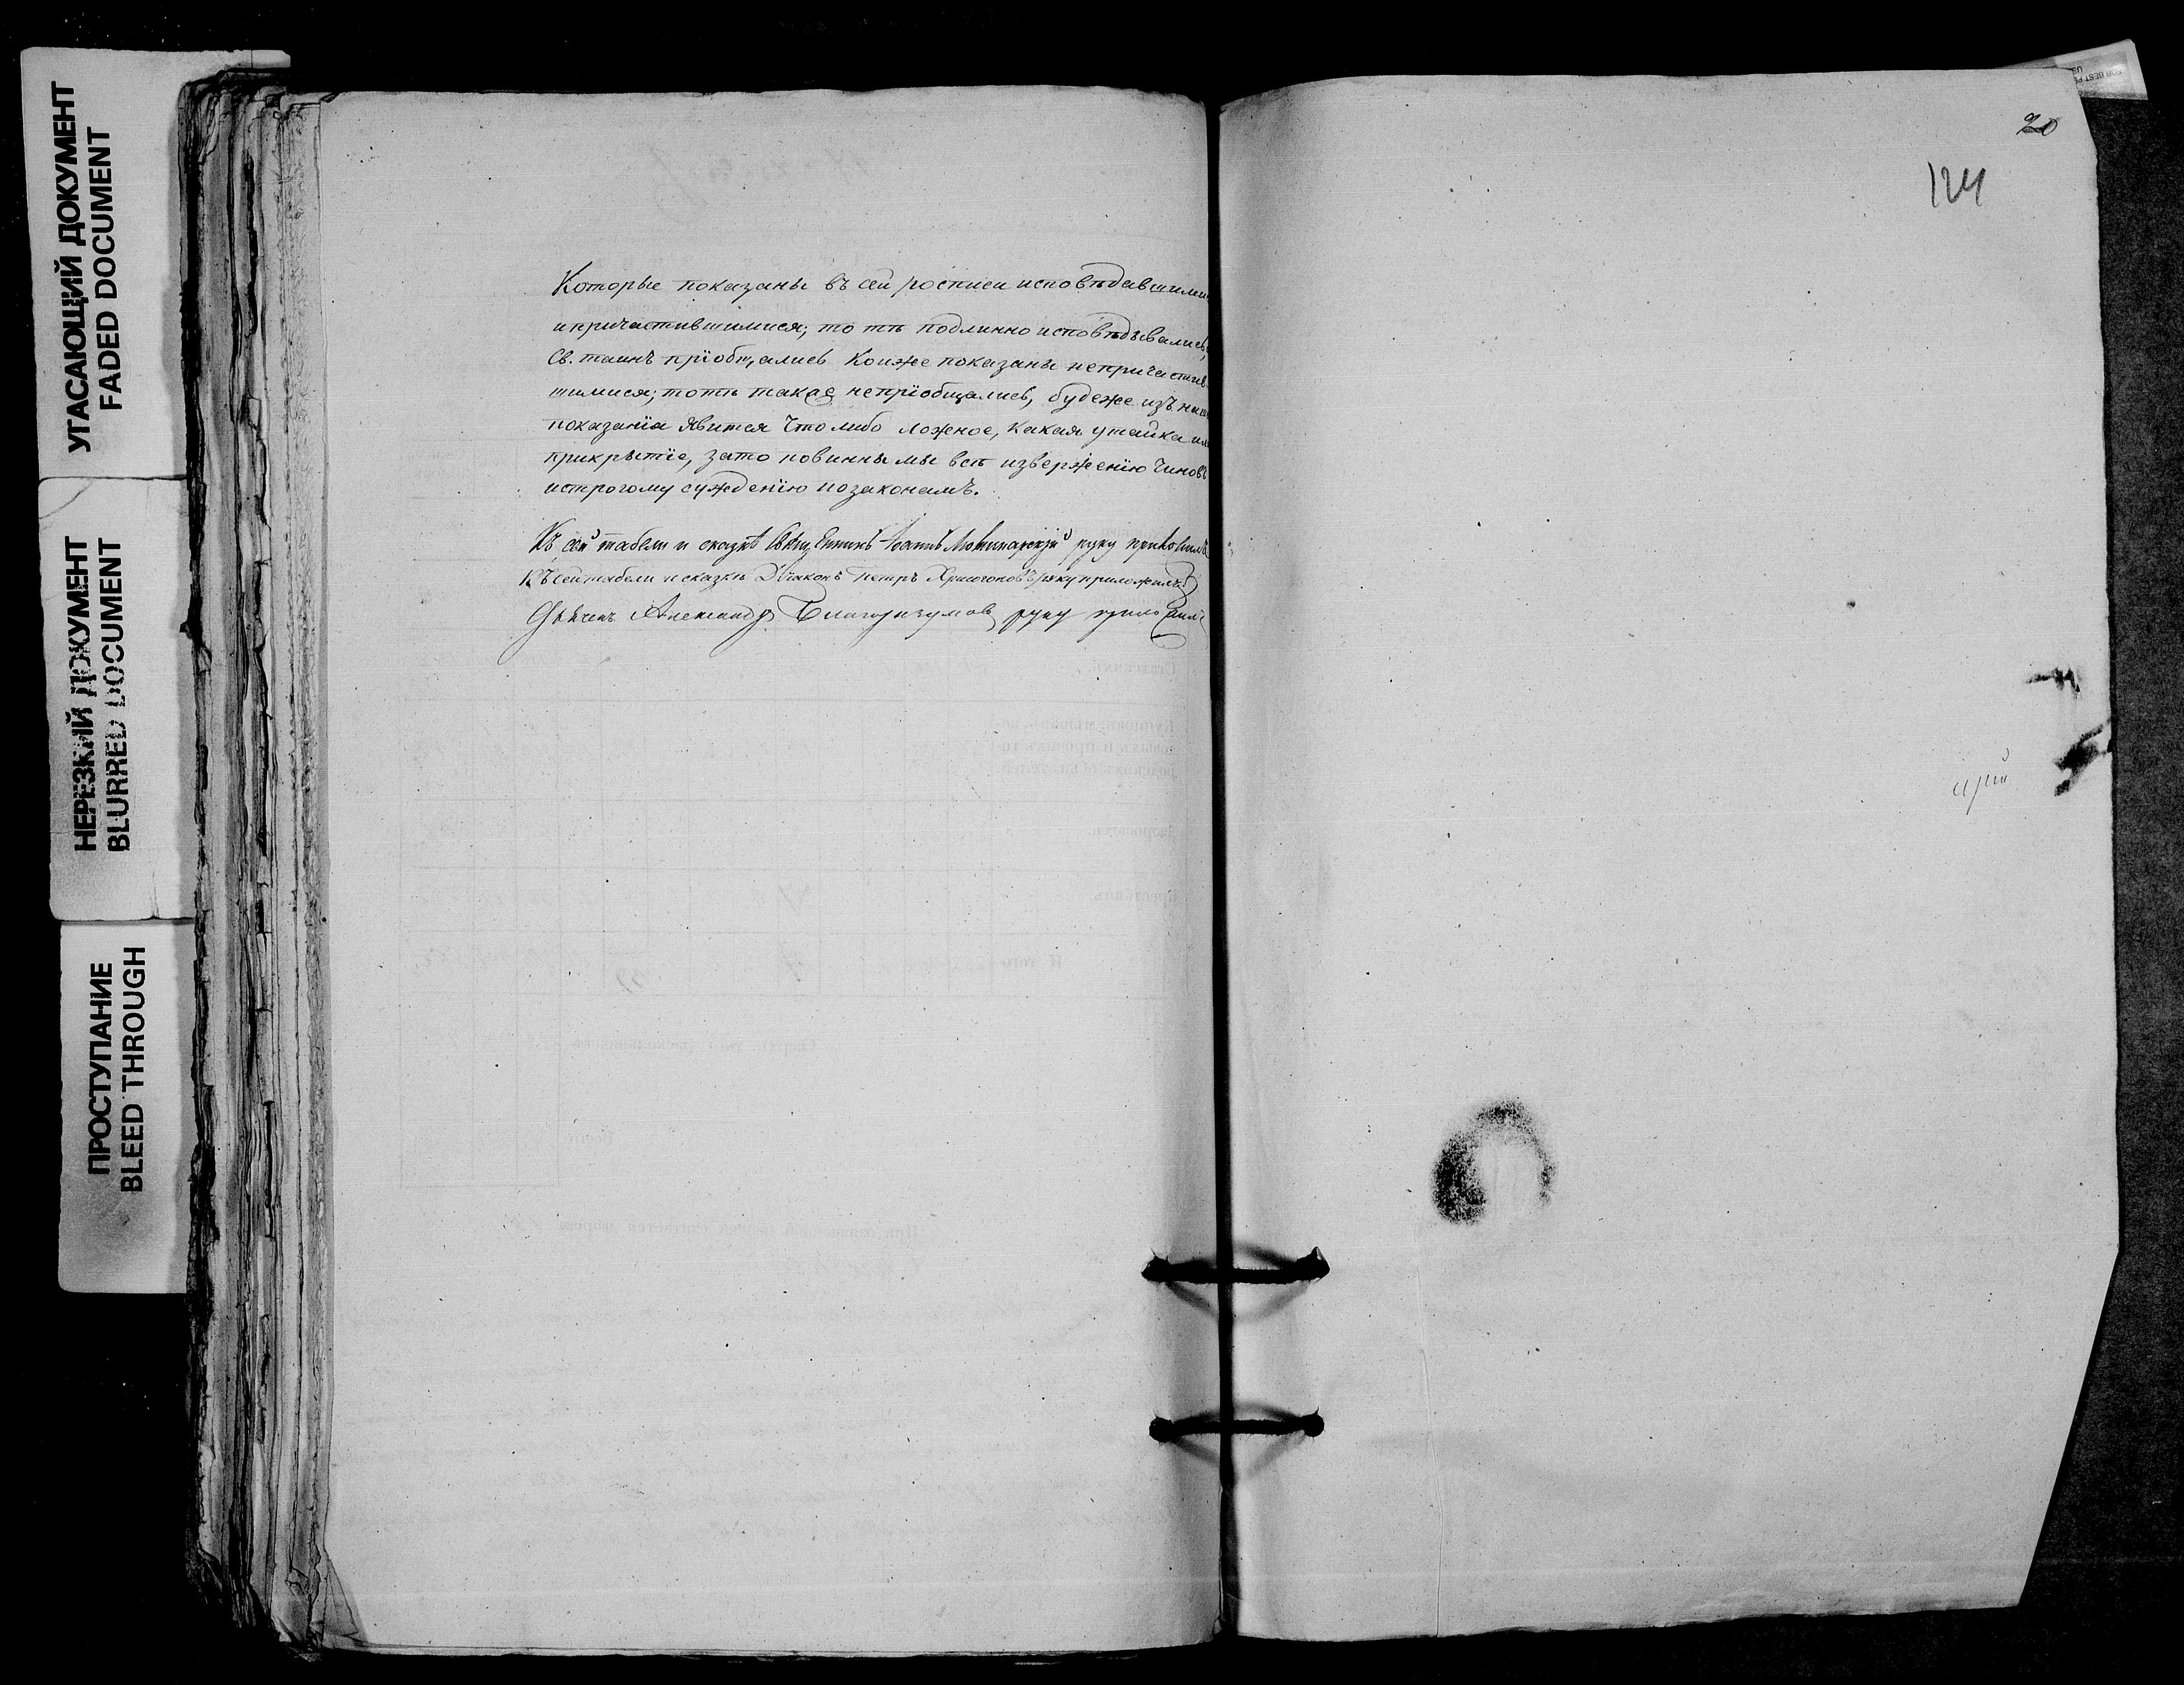 УГАСАЮЩИЙ ДОКУМЕНТ
FADED DOCUMENT
НЕРЕЗКИЙ ДОКУМЕНТ
BLURRED DOCUMENT
ПРОСТУПАНИЕ
BLEED THROUGH
Которые показаны въ сей росписи исповѣдавшими
и причастившимися; то тѣ подлинно исповѣдывались,
Св. таинъ пріобщались Коиже показаны непричастив
шимися; то тѣ такае непріобщались, будеже изъ наш
показанія явится что либо ложное, какая утайка ил
прикрытіе, зато повинны мы всѣ изверженію чиновъ
и строгому сужденію по законамъ.
Къ сей табели и сказкѣ Священникъ Іоаннъ руку приложилъ
Къ сей табели и сказкѣ Діаконъ Петръ Хрисогоновъ руку приложилъ
Александръ Благоразумовъ руку приложилъ
20
124